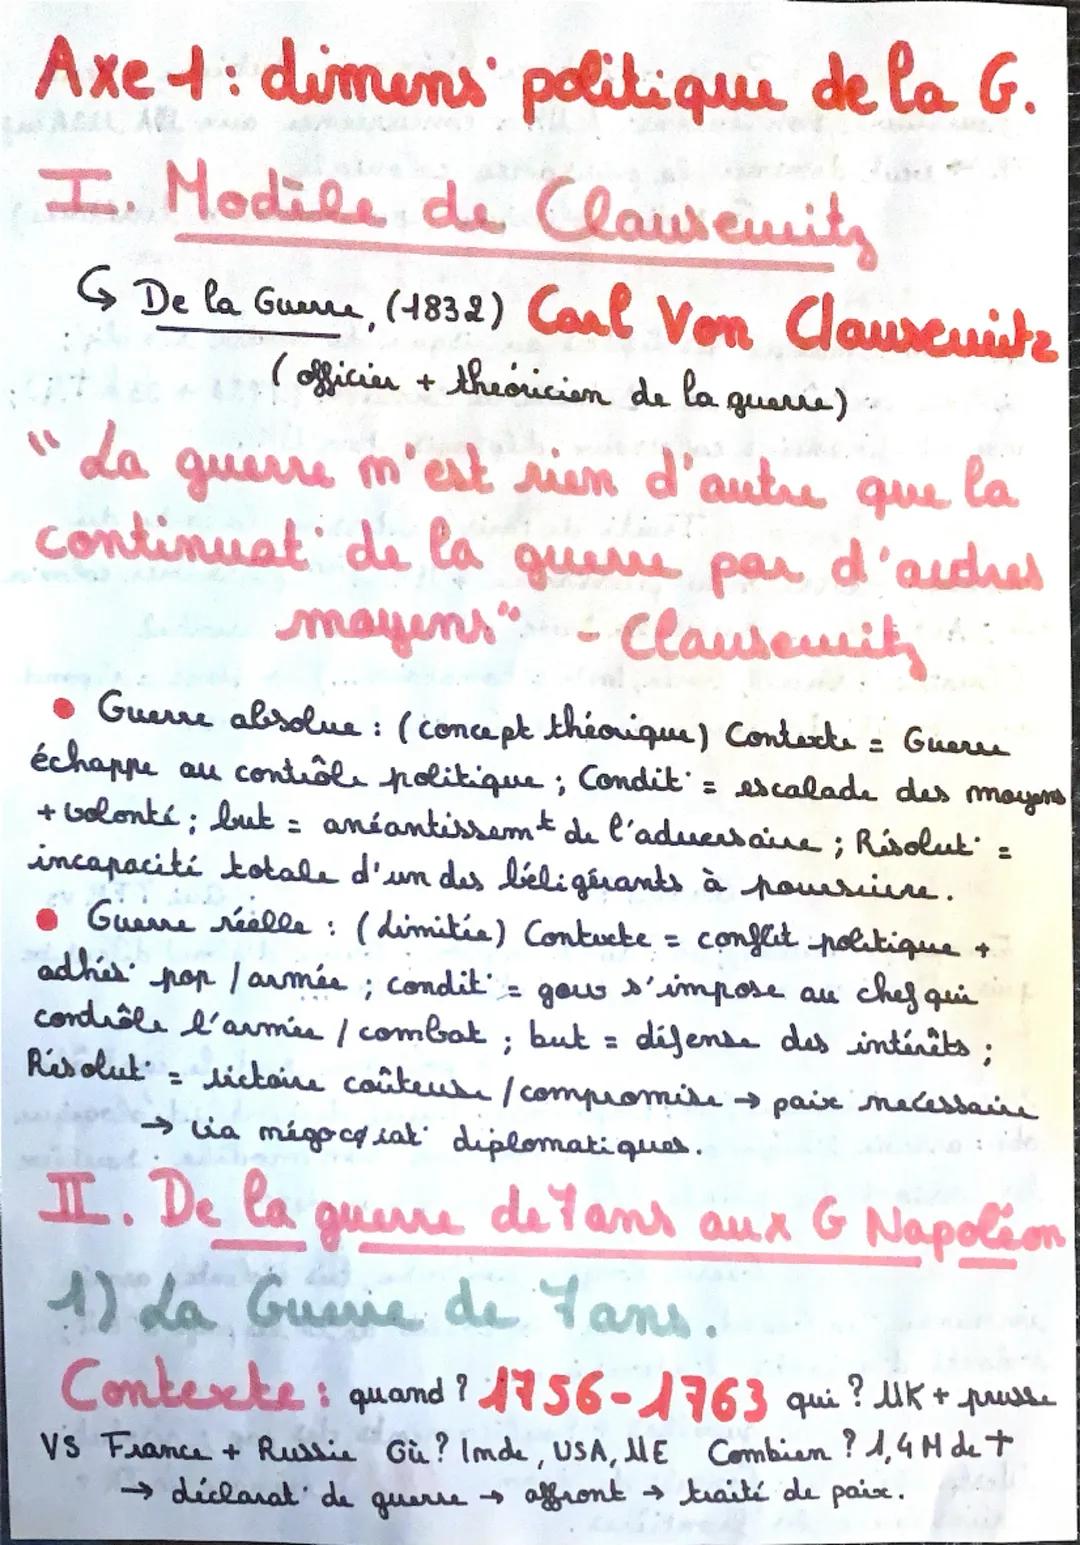 Axe 1: dimens° politique de la G.
I. Modèle de Clausewitz
↳ De la Guerre, (1832) Carl Von Clausewitz
(officier + théoricien de la guerre)
" La guerre n'est rien d'autre que la
continuat° de la guerre par d'autres
moyens" - Clausewitz
• Guerre absolue : (concept théorique) Contexte = Guerre
échappe au contrôle politique ; Condit° = escalade des moyens
+ volonté ; but = anéantissemt de l'adversaire ; Résolut° =
incapacité totale d'un des béligérants à poursuivre.
• Guerre réelle : (limitée) Contexte = conflit politique +
adhés° pop / armée ; condit° = gouv s'impose au chef qui
contrôle l'armée / combat ; but = défense des intérêts ;
Résolut° = victoire coûteuse / compromise → paix necessaire
→ via négociat° diplomatiques.
II. De la guerre de 7 ans aux G Napoléon
1) La Guerre de 7 ans.
Contexte : quand ? 1756-1763 qui ? UK + prusse
VS France + Russie Où ? Inde, USA, UE Combien ? 1,4 M de +
→ déclarat° de guerre → affront → traité de paix.